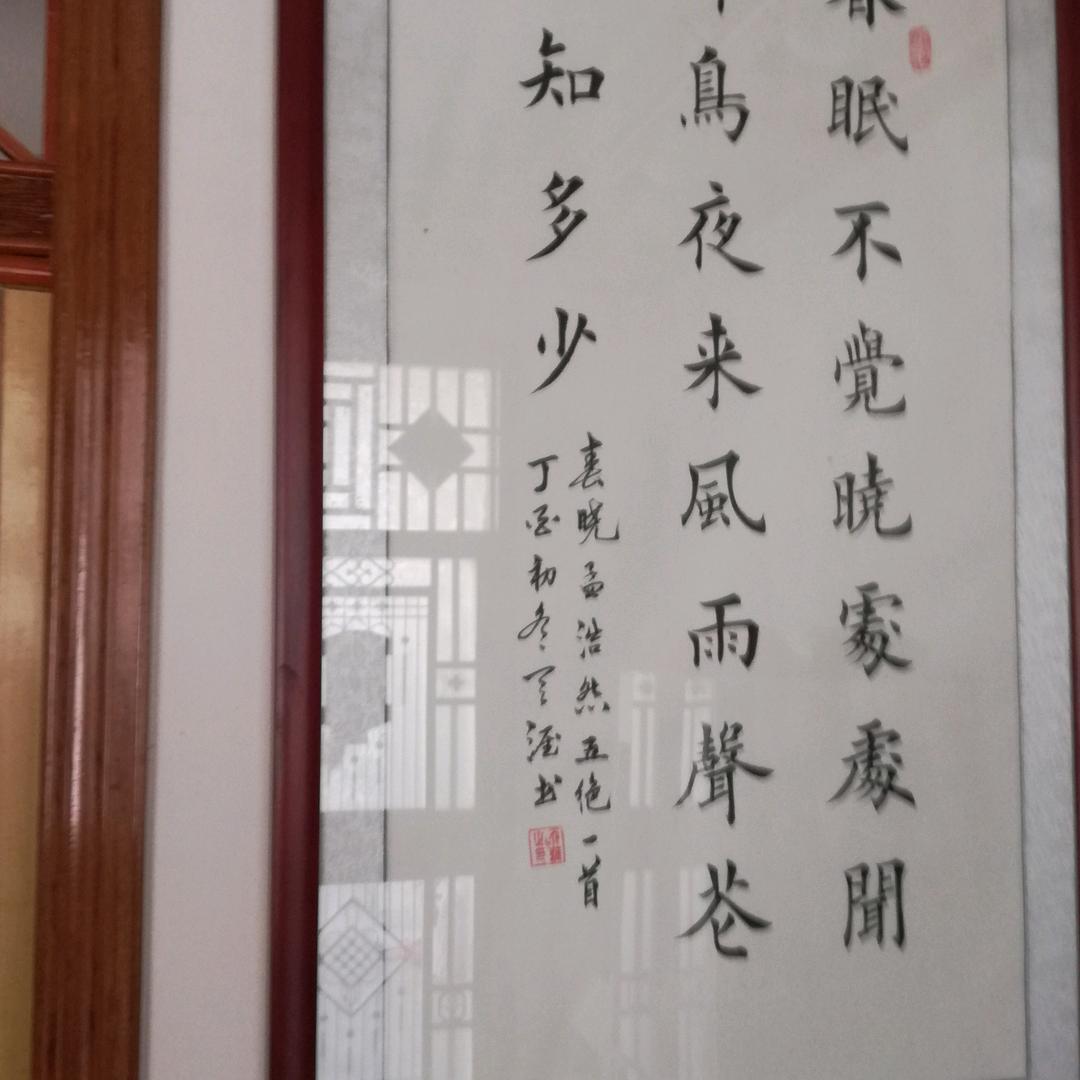 春眠不覺曉處處聞
鳥夜来風雨聲花
知多少
春曉孟浩然五绝一首
丁酉初冬天涯书